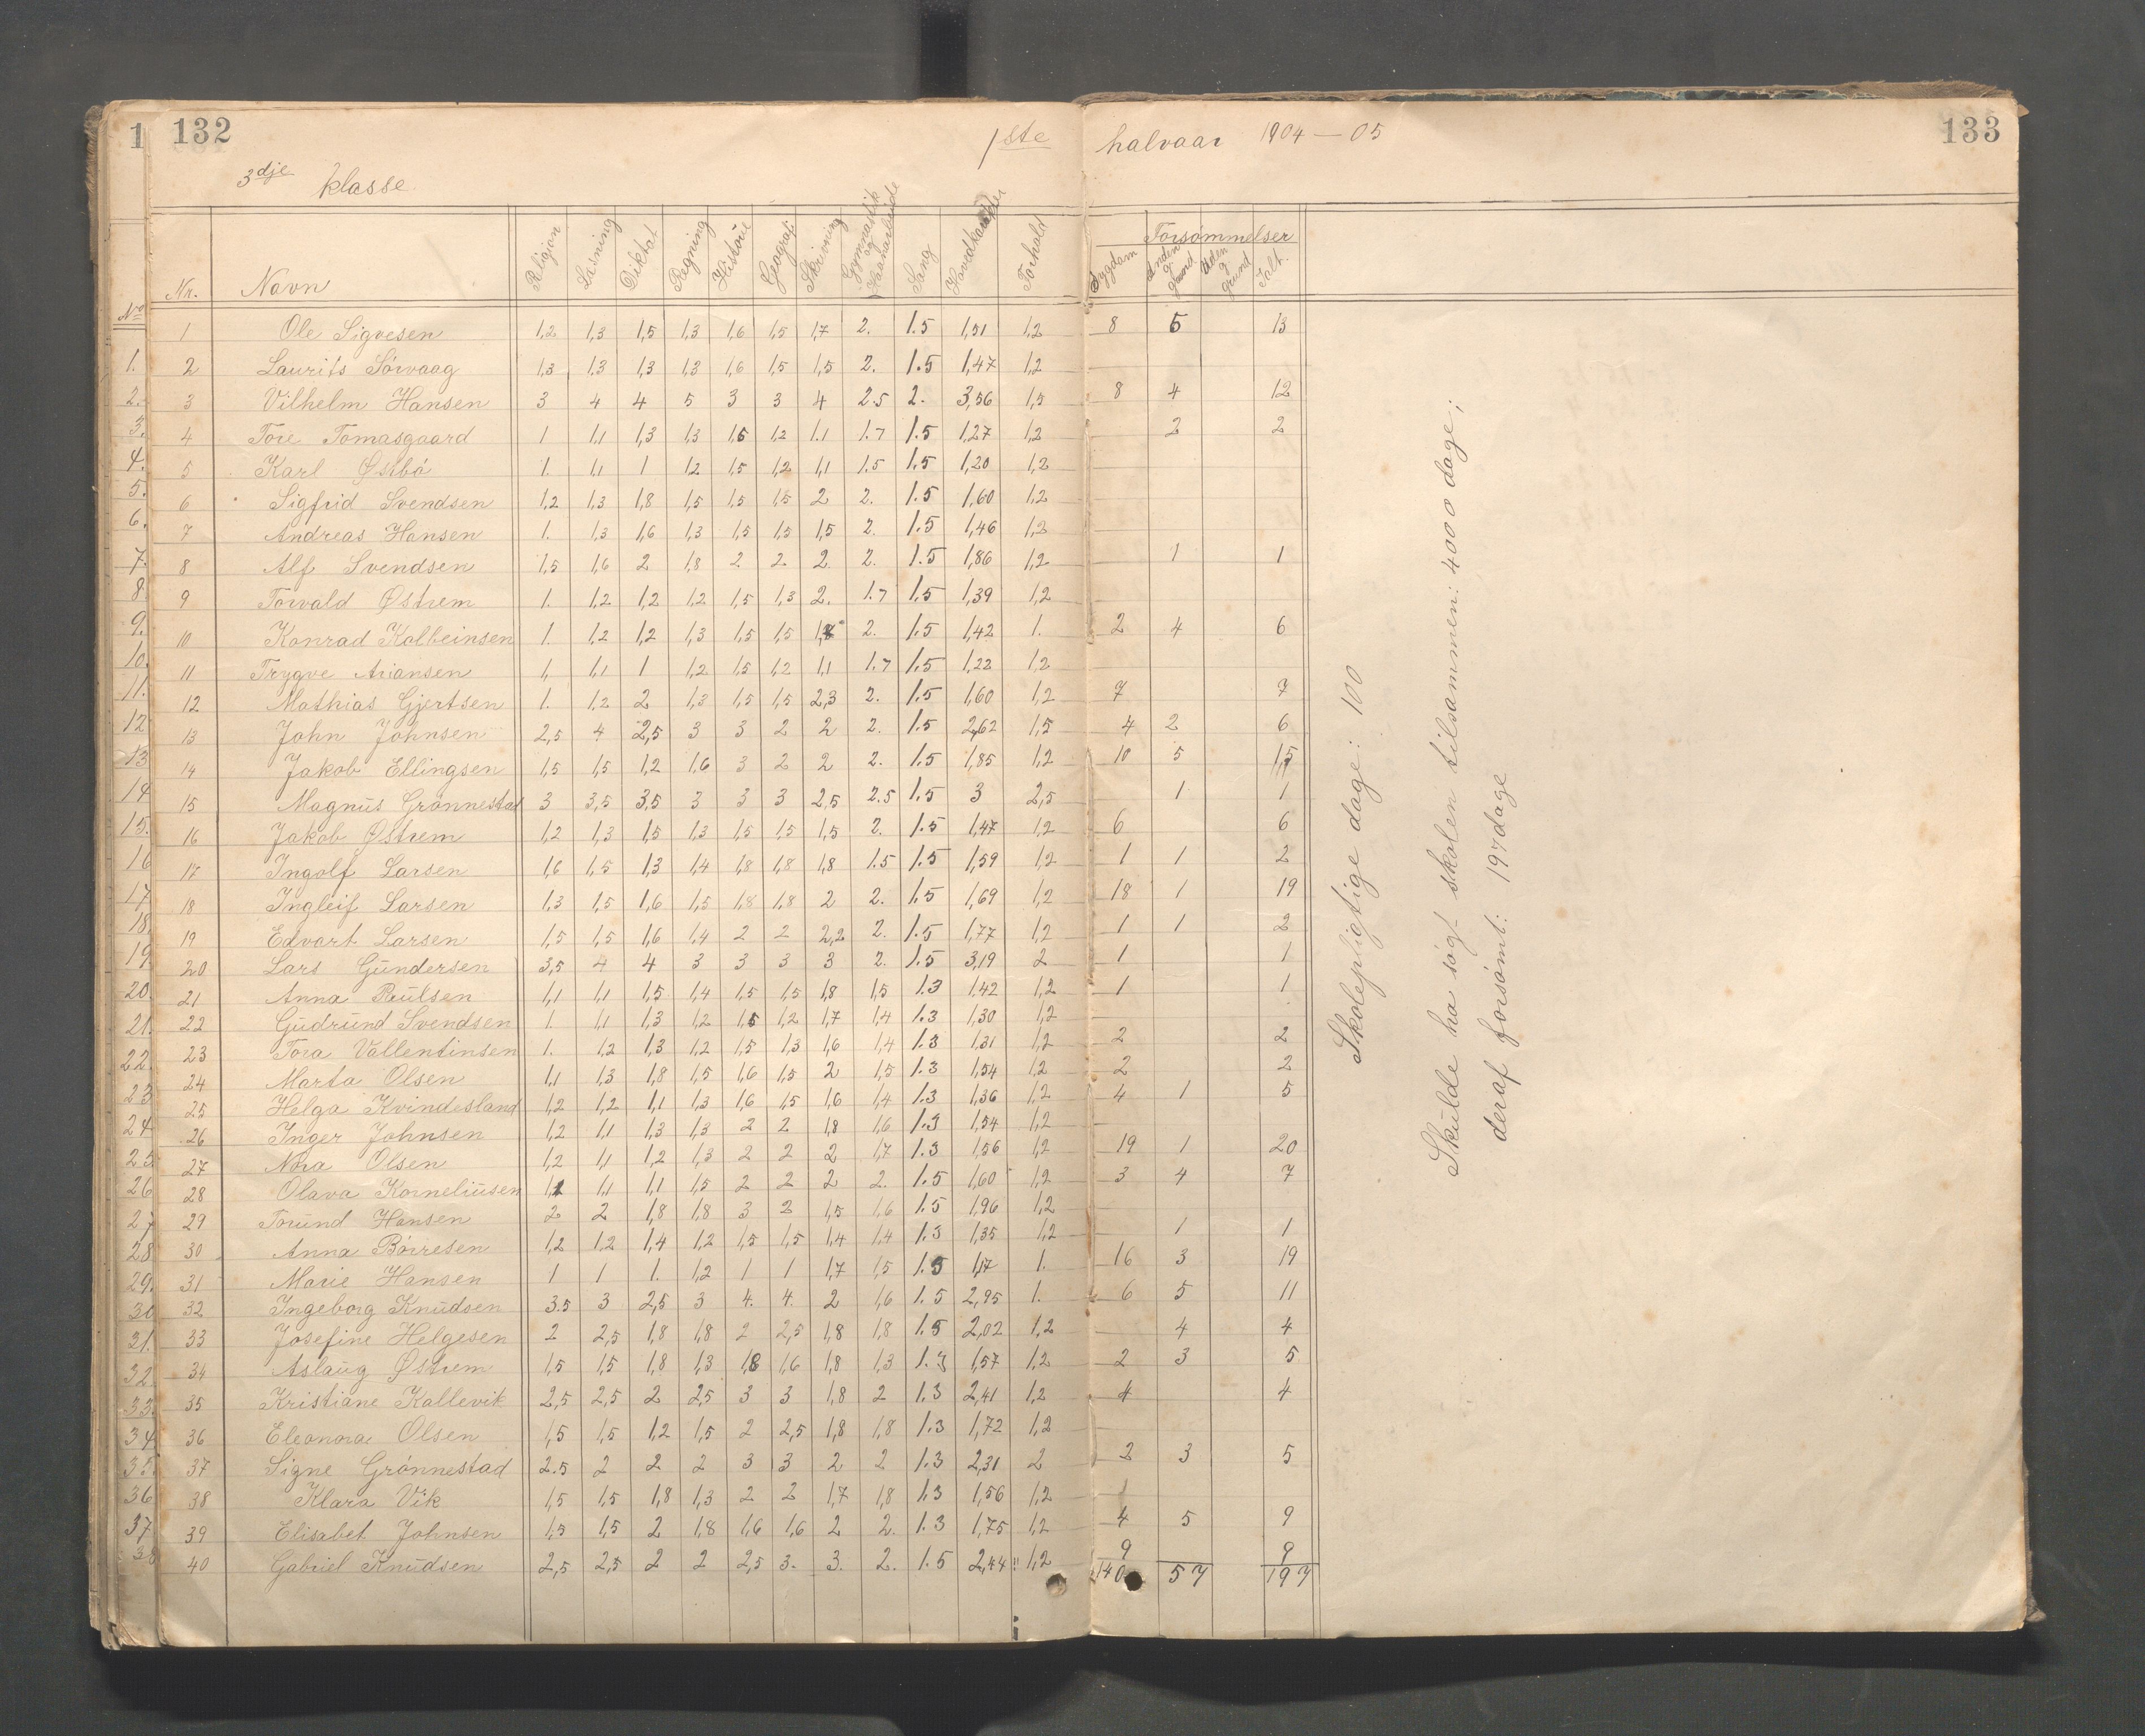 1 132 1ste halvaar 1904 — 05 133
3dje klasse
Forsømmelser
Nr. Navn Religion Læsning Diktat Regning Historie Geografi Skrivning Gymnastik og Haandarbeide Sang Hovedkarakter Forhold Sygdom Anden g. grund Uden g. grund Ialt.
1 Ole Sigvesen 1,2 1,3 1,5 1,3 1,6 1,5 1,7 2. 1.5 1,51 1,2 8 5 13
2 Laurits Sørvaag 1,3 1,3 1,3 1,3 1,6 1,5 1,5 2. 1.5 1,47 1,2
3 Vilhelm Hansen 3 4 4 5 3 3 4 2.5 2. 3,56 1,5 8 4 12
4 Tore Tomasgaard 1 1,1 1,3 1,3 1,5 1,2 1.1 1.7 1.5 1,27 1,2 2 2
5 Karl Østbø 1. 1,1 1 1,2 1,5 1,2 1,1 1.5 1.5 1,20 1,2
6 Sigfrid Svendsen 1,2 1,3 1,8 1,5 1,5 1,5 2 2. 1.5 1,60 1,2
7 Andreas Hansen 1. 1,3 1,6 1,3 1,5 1,5 1,5 2. 1.5 1,46 1,2
8 Alf Svendsen 1,5 1,6 2 1,8 2 2 2. 2. 1.5 1,86 1,2 1 1
9 Torvald Østrem 1. 1,2 1,2 1,2 1,5 1,3 2. 1.7 1,5 1,39 1,2
10 Konrad Kolbeinsen 1. 1,2 1,2 1,3 1,5 1,5 1,8 2. 1.5 1,42 1. 2 4 6
11 Trygve Ariansen 1, 1,1 1 1,2 1,5 1,2 1,1 1.7 1.5 1,22 1,2
12 Mathias Gjertsen 1. 1,2 2 1,3 1,5 1,5 2,3 2. 1.5 1,60 1,2 7 7
13 John Johnsen 2,5 4 2,5 3 3 2 2 2. 1.5 2,62 1,5 4 2 6
14 Jakob Ellingsen 1,5 1,5 1,2 1,6 3 2 2 2. 1.5 1,85 1,2 10 5 15
15 Magnus Grønnestad 3 3,5 3,5 3 3 3 2,5 2.5 1.5 3 2,5 1 1
16 Jakob Østrem 1,2 1,3 1,5 1,3 1,5 1,5 1,5 2. 1.5 1,47 1,2 6 6
17 Ingolf Larsen 1,6 1,5 1,3 1,4 1,8 1,8 1,8 1.5 1.5 1,59 1,2 1 1 2
18 Ingleif Larsen 1,3 1,5 1,6 1,5 1,8 1,8 2 2. 1.5 1,69 1,2 18 1 19
19 Edvart Larsen 1,5 1,5 1,6 1,4 2 2 2,2 2. 1.5 1,77 1,2 1 1 2
20 Lars Gundersen 3,5 4 4 3 3 3 3 2. 1.5 3,19 2 1 1
21 Anna Paulsen 1,1 1,1 1,5 1,4 1,5 1,5 1,8 1,5 1.3 1,42 1,2 1 1
22 Gudrund Svendsen 1. 1,1 1,3 1,2 1,5 1,2 1,7 1,4 1.3 1,30 1,2
23 Tora Vallentinsen 1. 1,2 1,3 1,2 1,5 1,3 1,6 1,4 1.3 1,31 1,2 2 2
24 Marta Olsen 1,1 1,3 1,8 1,5 1,6 1,5 2 1,5 1.3 1,54 1,2 2 2
25 Helga Kvindesland 1,2 1,2 1,1 1,3 1,6 1,5 1,6 1,4 1.3 1,36 1,2 4 1 5
26 Inger Johnsen 1,2 1,1 1,3 1,3 2 2 1,8 1,6 1.3 1,54 1,2
27 Nora Olsen 1,2 1,1 1,2 1,3 2 2 2 1,7 1.3 1,56 1,2 19 1 20
28 Olava Korneliusen 1,1 1,1 1,5 2 2 2 2. 1.5 1,60 1,2 3 4 7
29 Torund Hansen 2 2 1,8 1,8 3 2 1,5 1,6 1.5 1,96 1,2
30 Anna Børresen 1,2 1,2 1,4 1,2 1,5 1,5 1,4 1,4 1.3 1,35 1,2 1 1
31 Marie Hansen 1 1 1. 1,2 1 1 1,7 1,5 1.5 1,17 1. 16 3 19
32 Ingeborg Knudsen 3.5 3 2,5 3 4. 4. 2 1,6 1.5 2,95 1. 6 5 11
33 Josefine Helgesen 2 2,5 1,8 1,8 2 2,5 1,8 1,8 1.5 2,02 1,2 4 4
34 Aslaug Østrem 1,5 1,5 1,8 1,3 1,8 1,6 1,8 1,3 1.3 1,57 1,2 2 3 5
35 Kristiane Kallevik 2,5 2,5 2 2,5 3 3 1,8 2 1.3 2,41 1,2 4 4
36 Eleonora Olsen 1,5 1,5 1,2 1,5 2 2,5 1,8 1,8 1.3 1,72 1,2
37 Signe Grønnestad 2.5 2 2 2 3 3 2 2 1.3 2,31 2 2 3 5
38 Klara Vik 1,5 1,5 1,8 1,3 2 2 1,7 1,8 1.3 1,56 1,2
39 Elisabet Johnsen 1,5 1,5 2 1,8 1,6 1,6 2 2. 1.3 1,75 1,2 4 5 9
40 Gabriel Knudsen 2,5 2,5 2 2 2,5 3. 3. 2. 1.5 2,44 1,2 9 9
140 57 197
Skolepligtige dage: 100
Skulde ha søgt skolen tilsammen: 4000 dage;
deraf forsømt: 197 dage
No
1.
2.
3.
4.
5.
6.
7.
8.
9.
10.
11.
12
13
14
15.
16
17
18.
19.
20.
21.
22.
23
24
25
26
27
28
29.
30
31.
32.
33.
34
35.
36
37
38